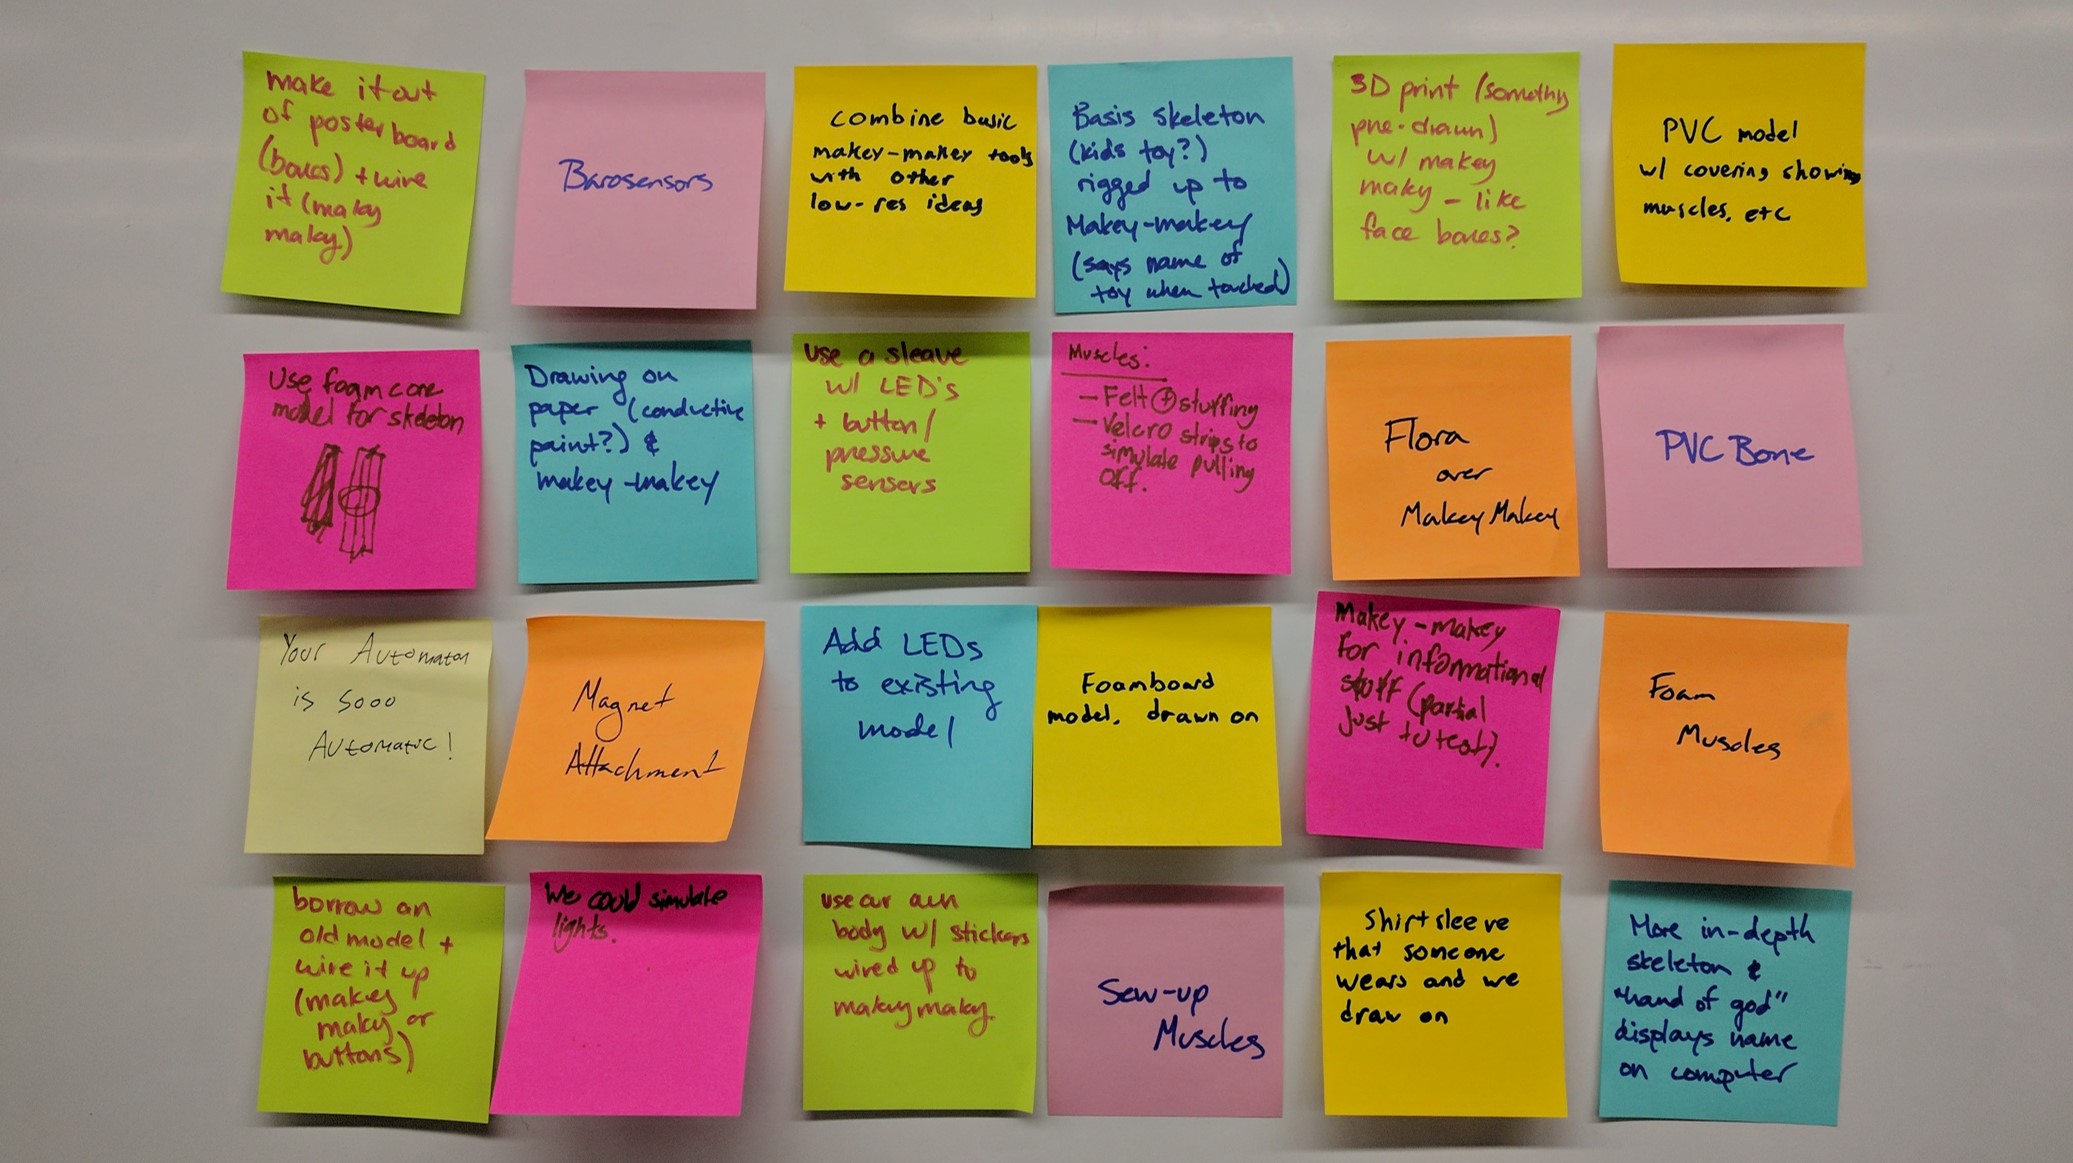 make it out
of posterboard
(boxes) + wire
it (maky
maky)
Barosensors
combine basic
makey-makey tools
with other
low-res ideas
Basis skeleton
(kids toy?)
rigged up to
Makey-makey
(says name of
toy when touched)
3D print (somethy
pre-drawn)
w/ makey
maky - like
face boxes?
PVC model
w/ covering showing
muscles, etc
Use foamcore
model for skeleton
Drawing on
paper (conductive
paint?) &
makey-makey
use a sleave
w/ LED's
+ button/
pressure
sensers
Muscles:
- Felt + stuffing
- Velcro strips to
simulate pulling
off.
Flora
over
MakeyMakey
PVC Bone
Your Automaton
is sooo
Automatic!
Magnet
Attachment
Add LEDs
to existing
model
Foamboard
model, drawn on
Makey-makey
for informational
stuff (partial
just to test).
Foam
Muscles
borrow an
old model +
wire it up
(makey
maky or
buttons)
We could simulate
lights.
use our own
body w/ stickers
wired up to
makeymaky.
Sew-up
Muscles
Shirt sleeve
that someone
wears and we
draw on
More in-depth
skeleton &
"hand of god"
displays name
on computer